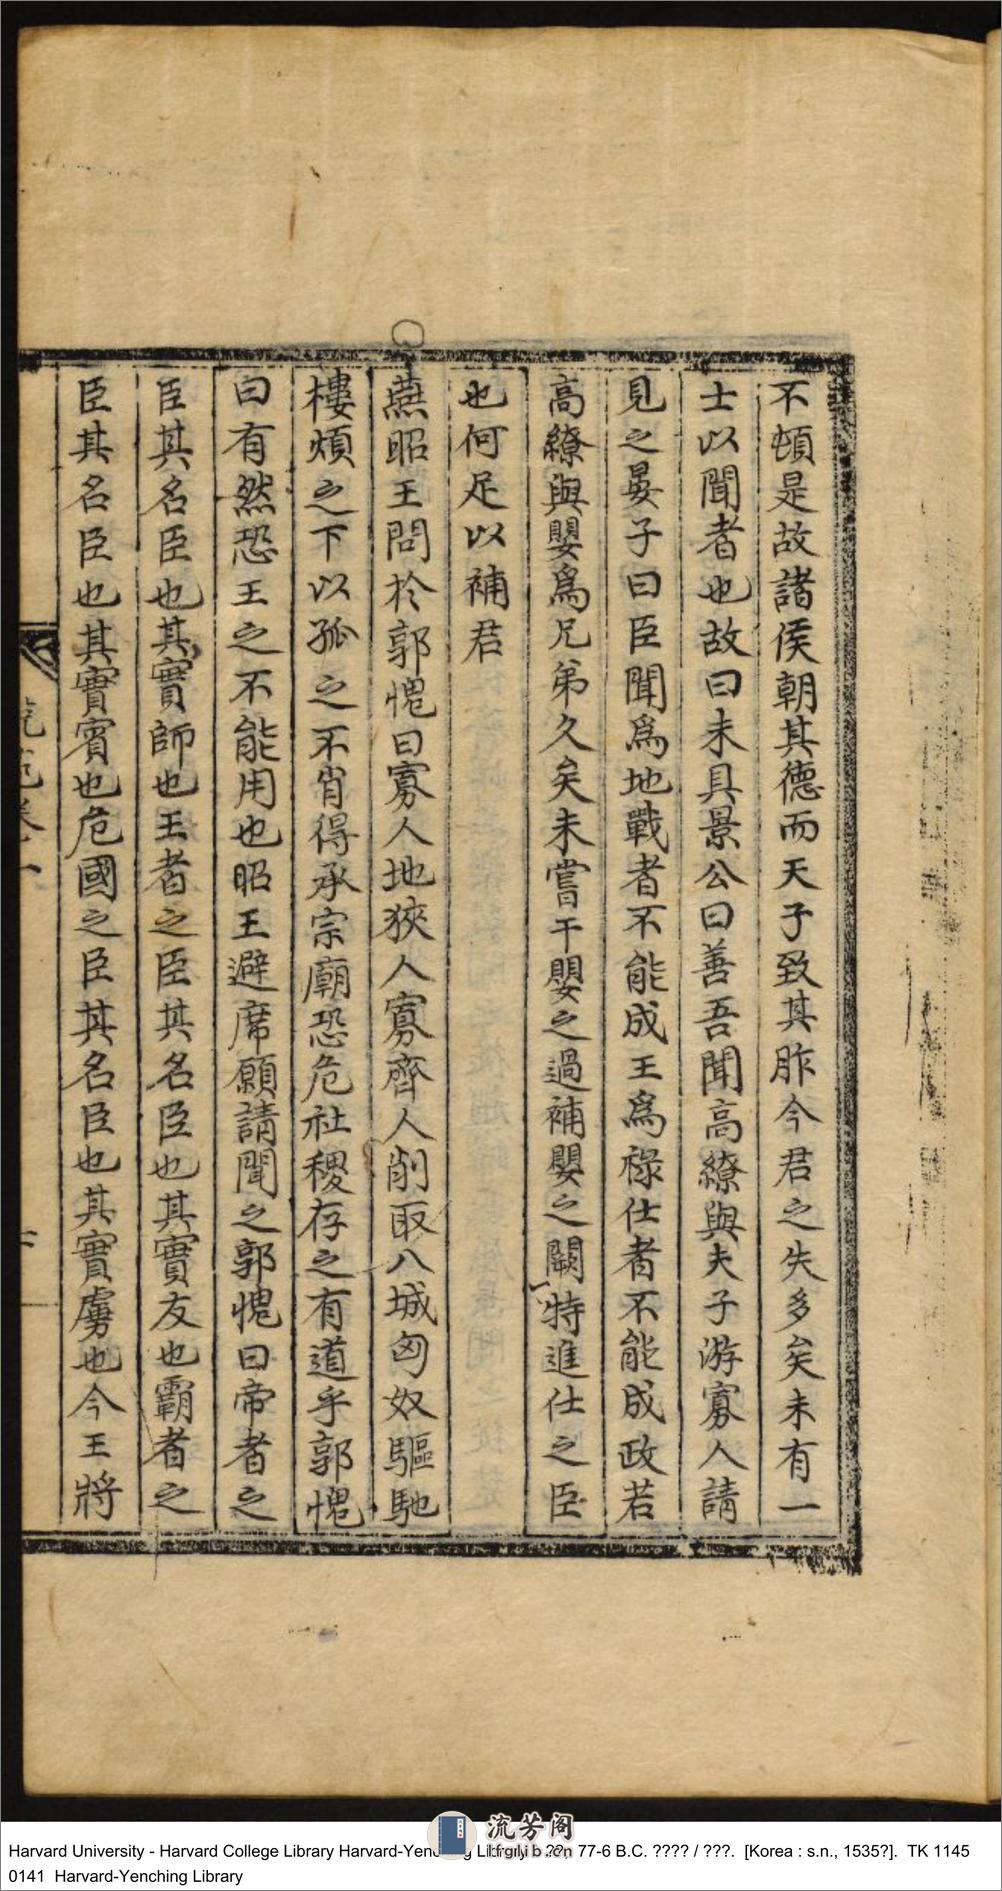 不頓是故諸侯朝其德而天子致其胙今君之失多矣未有一
士以聞者也故曰未具景公曰善吾聞高繚與夫子游寡人請
見之晏子曰臣聞爲地戰者不能成王爲祿仕者不能成政若
高繚與嬰爲兄弟久矣未嘗干嬰之過補嬰之闕特進仕之臣
也何足以補君
燕昭王問於郭愧曰寡人地狹人寡齊人削取八城匈奴驅馳
樓煩之下以孤之不肖得承宗廟恐危社稷存之有道乎郭愧
曰有然恐王之不能用也昭王避席願請聞之郭愧曰帝者之
臣其名臣也其實師也王者之臣其名臣也其實友也霸者之
臣其名臣也其實賓也危國之臣其名臣也其實虜也今王將
流芳阁
lfglib.cn
Harvard University - Harvard College Library Harvard-Yenching Library / ??. 77-6 B.C. ???? / ???. [Korea : s.n., 1535?]. TK 1145
0141 Harvard-Yenching Library